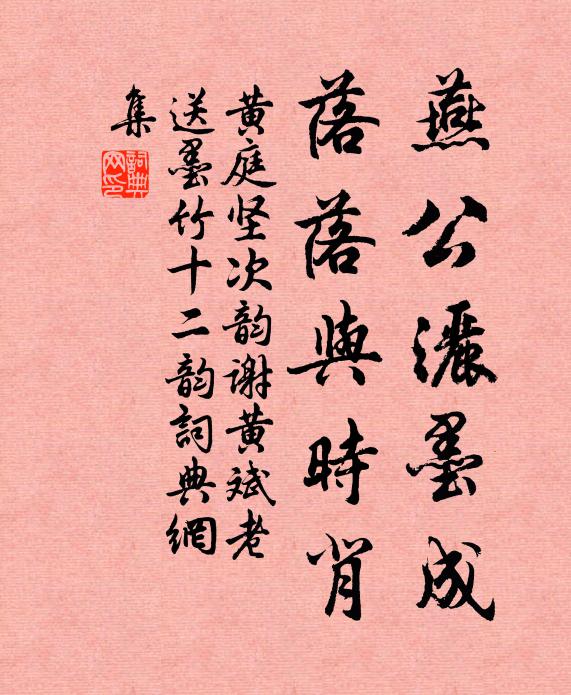 燕公灑墨成
落落與時背
黄庭坚次韵谢黄斌老
送墨竹十二韵詞典網
集
詞典網印